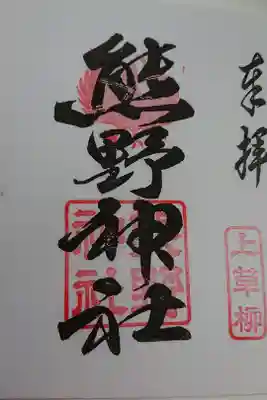 奉拝
上草柳
熊野神社
熊野神社